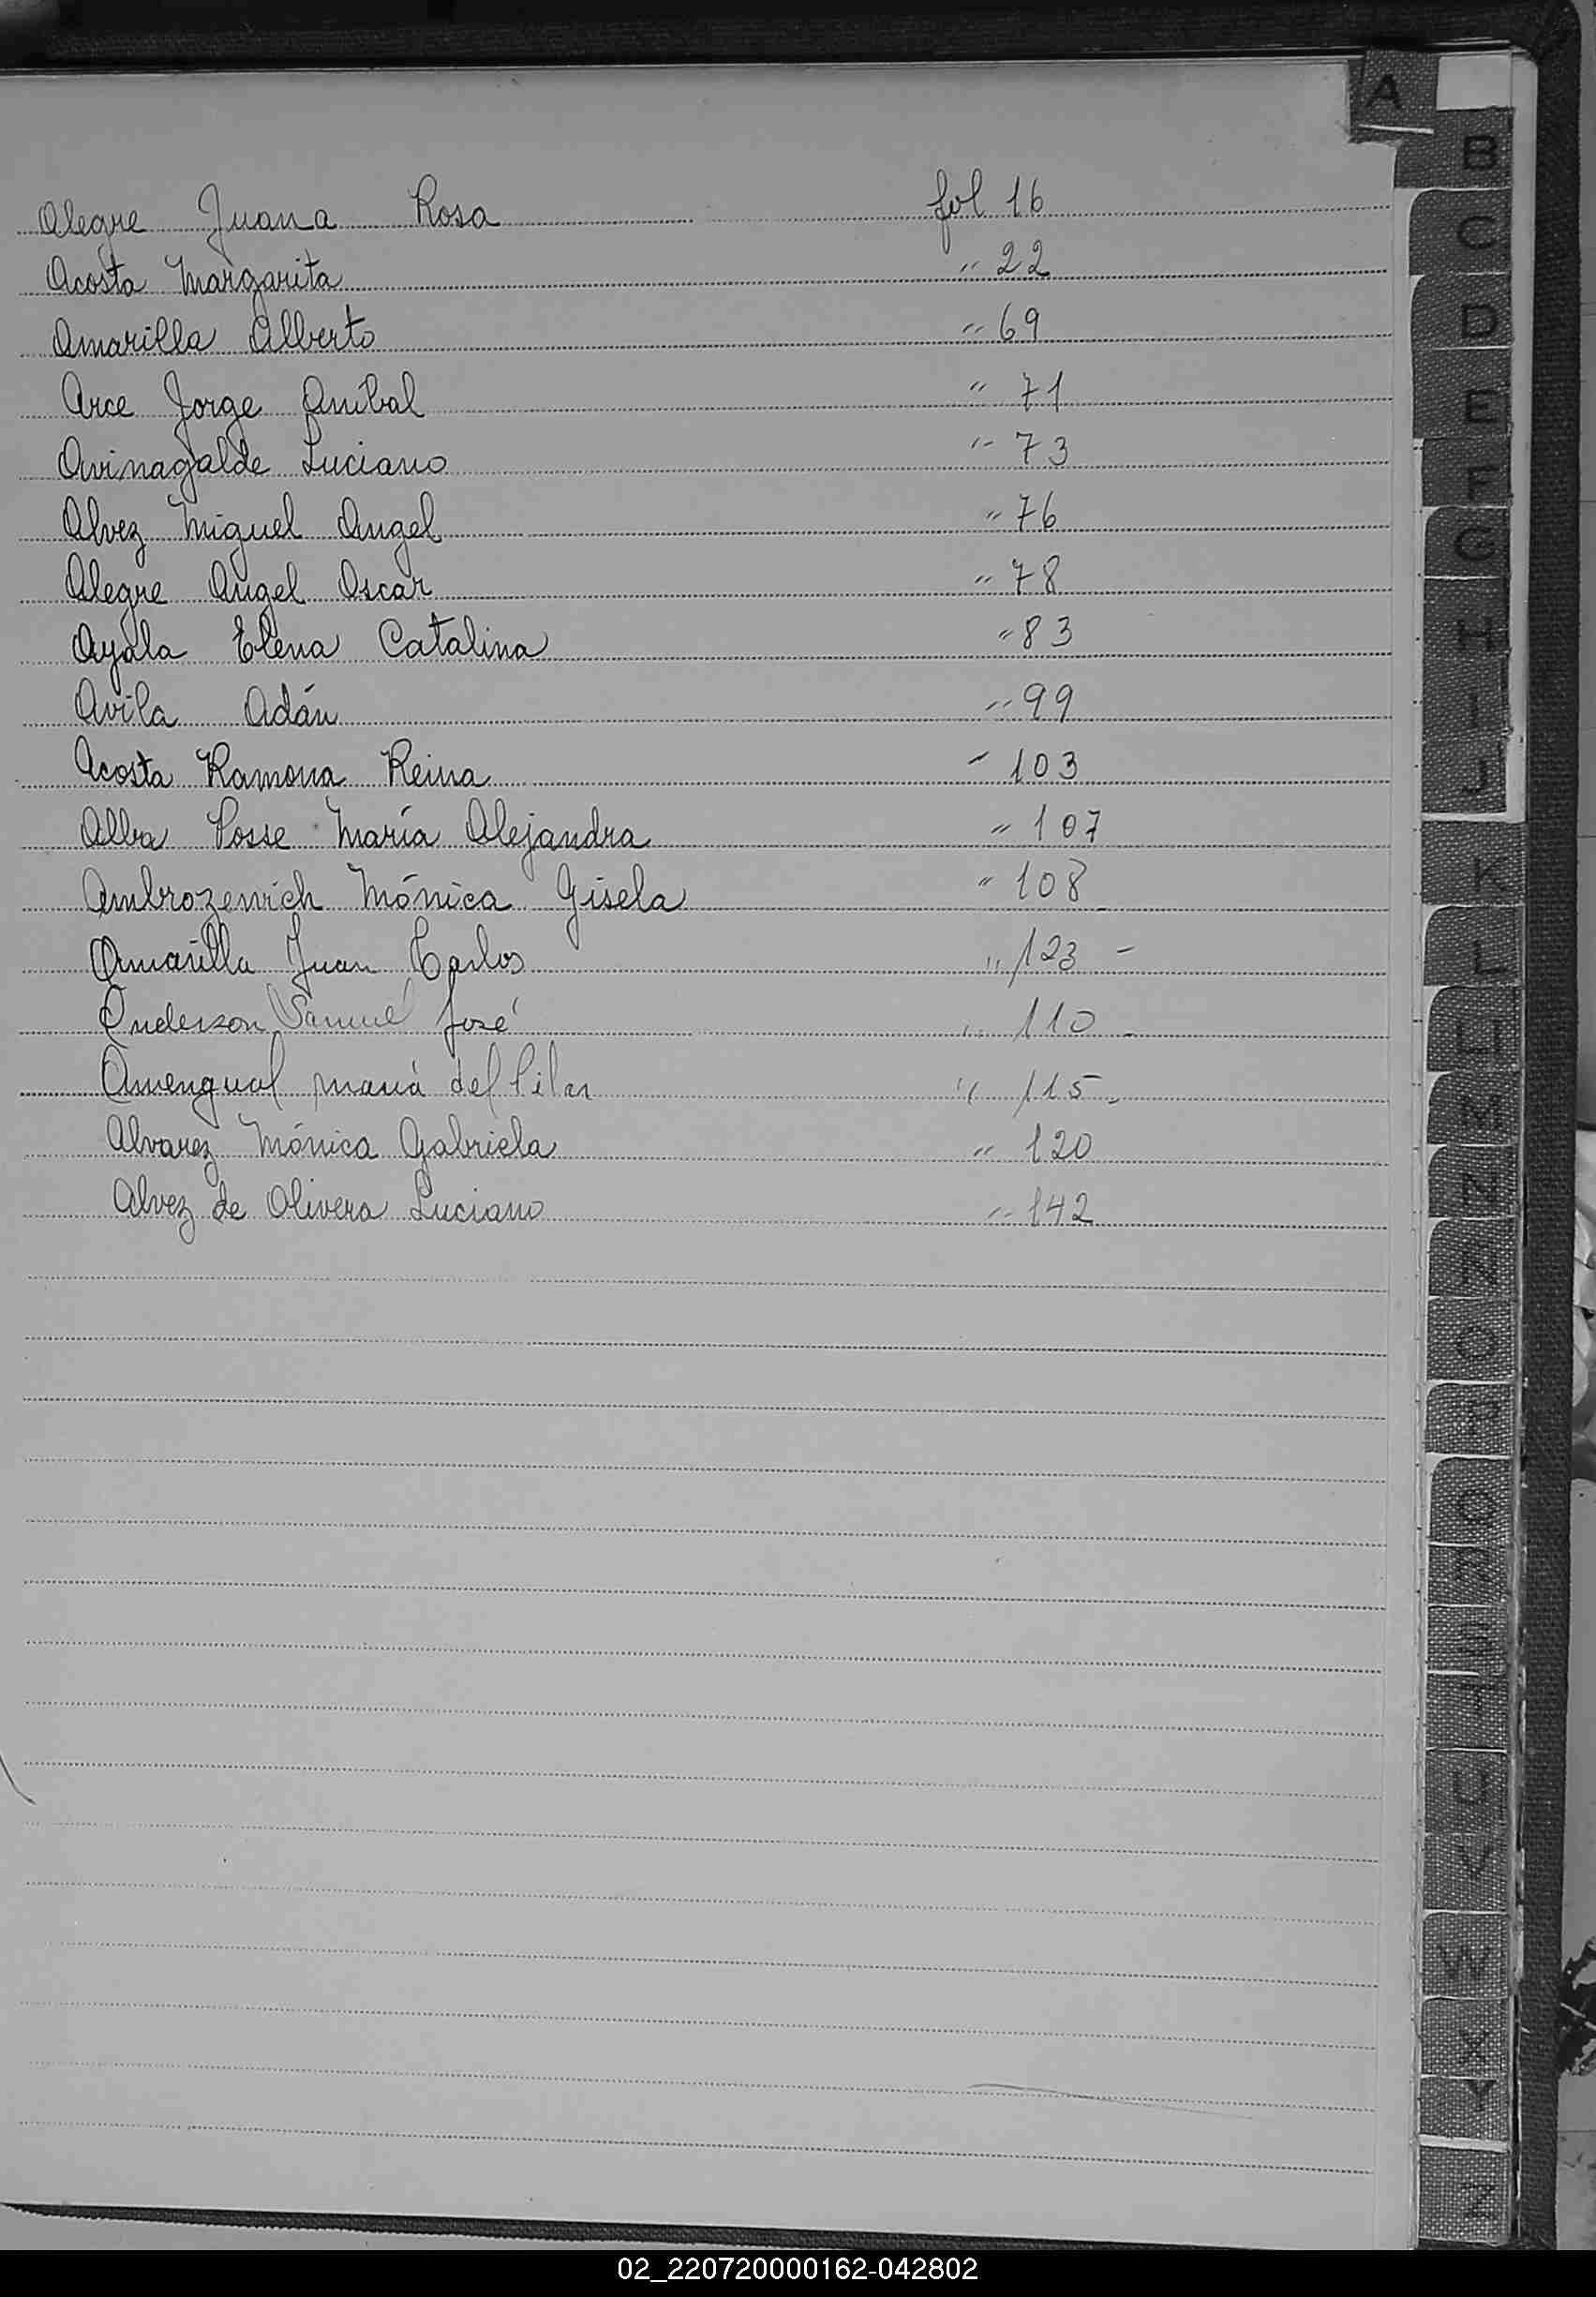 A
B
C
D
E
F
G
H
I
J
K
L
LL
M
N
Ñ
O
P
Q
R
S
T
U
V
W
X
Y
Z
Alegre Juana Rosa fol 16
Acosta Margarita " 22
Amarilla Alberto " 69
Arce Jorge Aníbal " 71
Avinagalde Luciano " 73
Alvez Miguel Angel " 76
Alegre Angel Oscar " 78
Ayala Elena Catalina " 83
Avila Adán " 99
Acosta Ramona Reina " 103
Alba Posse María Alejandra " 107
Ambrozevich Mónica Gisela " 108
Amarilla Juan Carlos " 123 -
Anderson Samuel José " 110 -
Amengual María del Pilar " 115 -
Alvarez Mónica Gabriela " 120
Alvez de Olivera Luciano " 142
02_220720000162-042802